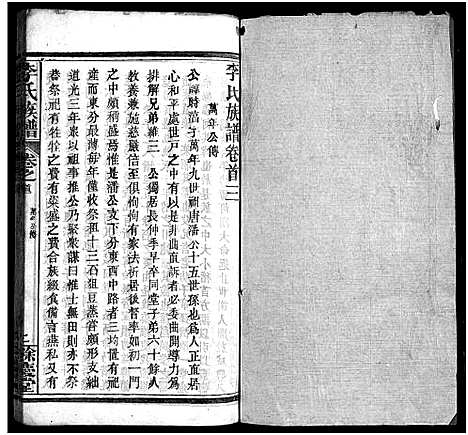 李氏族譜卷首三
萬年公傳
公諱時滔字萬年九世祖唐潘公十五世孫也為人正直居
心和平處世戸之中有以是非曲直訴者必委曲開導力為
排解兄弟維三公獨居長仲季早卒同堂子弟六十餘人
教養兼施慈嚴並至俱恂恂有家法析居後督課維勤一門
之中頗稱盛焉惟是潘公支下分東西中路者三均置有祀
產而東分最薄每年僅收祭租十三石俎豆蒸嘗頗形支絀
道光三年衆以祠事推公乃聚衆謀曰惟士無田則亦不祭
昔祭祀有牲牷之費有粢盛之費合族綴食備言燕私又有
李氏族譜
卷之首
萬年公傳
餘慶堂